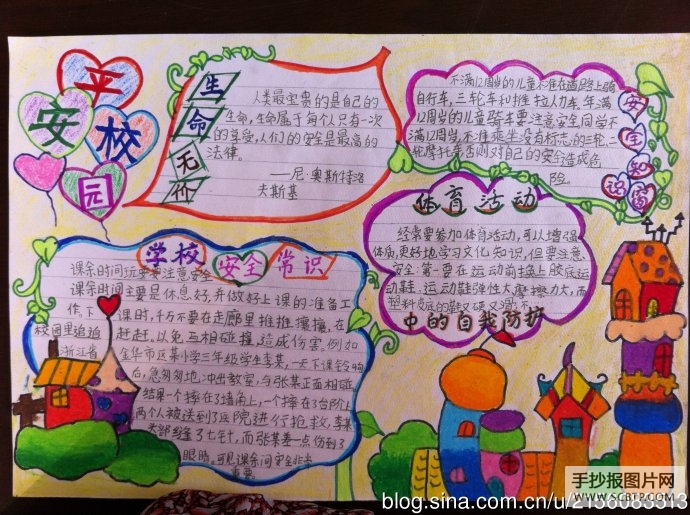 平
安
校
园
生
命
无
价
人类最宝贵的是自己的
生命,生命属于每个人只有一次
的享受,人们的安全是最高的
法律。
——尼·奥斯特洛
夫斯基
不满12周岁的儿童不准在道路上骑
自行车,三轮车和推拉人力车,年满
12周岁的儿童骑车要注意安全同学不
满12周岁,不准乘坐没有标志的三轮,二
轮摩托车否则对自己的安全造成危
险。
安
全
知
识
窗
体育活动
经常要参加体育活动,可以增强
体质,更好地学习文化知识,但要注意
安全第一要在运动前换上胶底运
动鞋,运动鞋弹性大摩擦力大,而
塑料皮底的鞋又硬又滑,
中的自我防护
学校
安全
常识
课余时间玩耍要注意安全
课余时间主要是休息好,并做好上课的准备工
作,下课时,千万不要在走廊里推推攘攘,在
校园里追追赶赶。以免互相碰撞,造成伤害,例如
浙江省金华市区某小学三年级学生李某,一天下课铃响
后,急匆匆地冲出教室,与张某正面相碰
结果一个摔在了墙角上,一个摔在了台阶上
两个人被送到了医院进行抢救,李某
头部缝了七针,而张某差一点伤到了
眼睛,可见课余间安全非常
重要。
手抄报图片网
WWW.SCBTP.COM
blog.sina.com.cn/u/2156083313